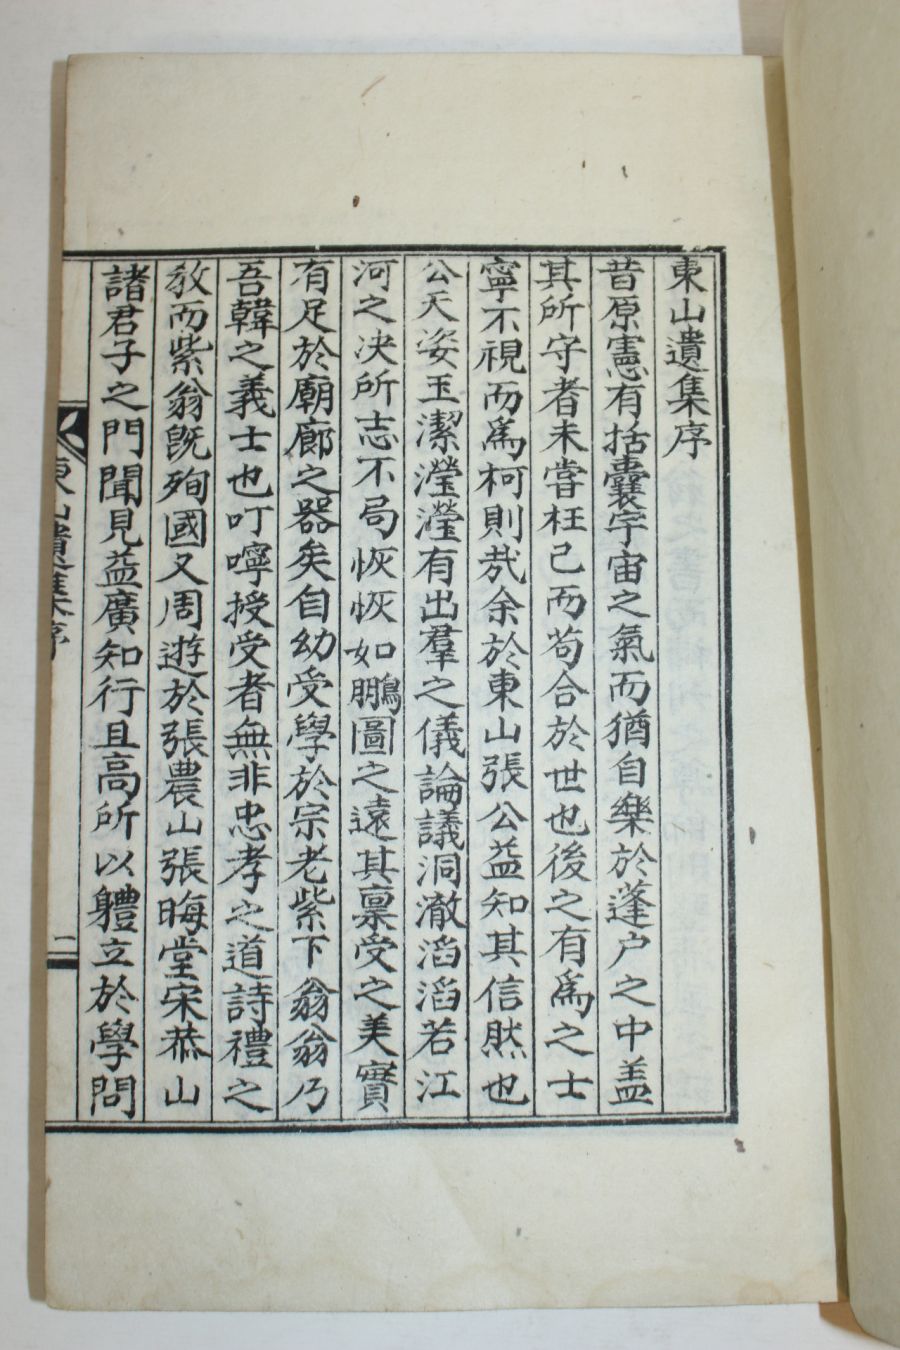 東山遺集序
昔原憲有括囊宇宙之氣而猶自樂於蓬户之中盖
其所守者未嘗枉己而苟合於世也後之有爲之士
寧不視而爲柯則㢤余於東山張公益知其信然也
公天姿玉潔瀅瀅有出羣之儀論議洞澈滔滔若江
河之决所志不局恢恢如鵬圖之遠其禀受之美實
有足於廟廊之器矣自幼受學於宗老紫下翁翁乃
吾韓之義士也叮嚀授受者無非忠孝之道詩禮之
敎而紫翁旣殉國又周遊於張農山張晦堂宋恭山
諸君子之門聞見益廣知行且高所以軆立於學問
東山遺集序
一